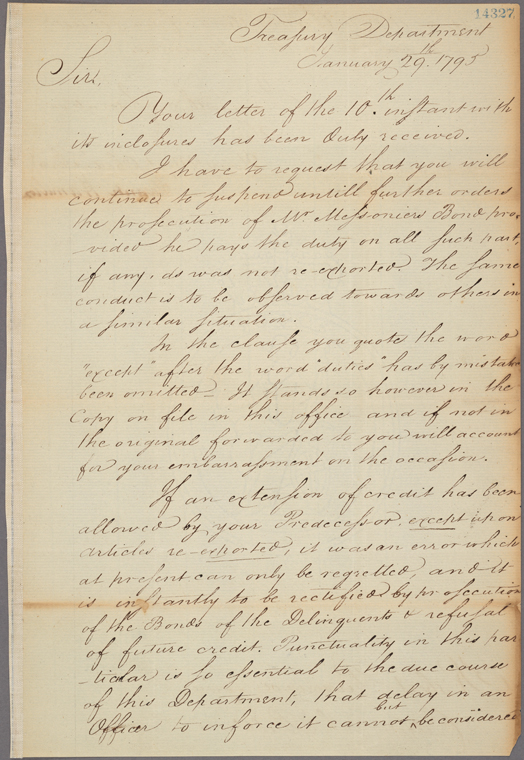 14327
Treasury Department
January 29th. 1795
Sir,
Your letter of the 10.th instant with
its inclosures has been duly received.
I have to request that you will
continue to suspend untill further orders
the prosecution of Mr. Messoniers Bond pro,
-vided he pays the duty on all such part,
if any, as was not re-exported. The same
conduct is to be observed towards others in
a similar situation.
In the clause you quote the word
"except" after the word "duties" has by mistake
been omitted- It stands so however in the
Copy on file in this office and if not in
the original forwarded to you will account
for your embarrassment on the occasion.
If an extension of credit has been
allowed by your Predecessor, except upon
articles re-exported, it was an error which
at present can only be regretted, and it
is instantly to be rectified by prosecution
of the Bonds of the Delinquents & refusal
of future credit. Punctuality in this par
-ticular is so essential to the due course
of this Department, that delay in an
Officer to inforce it cannot but be considered